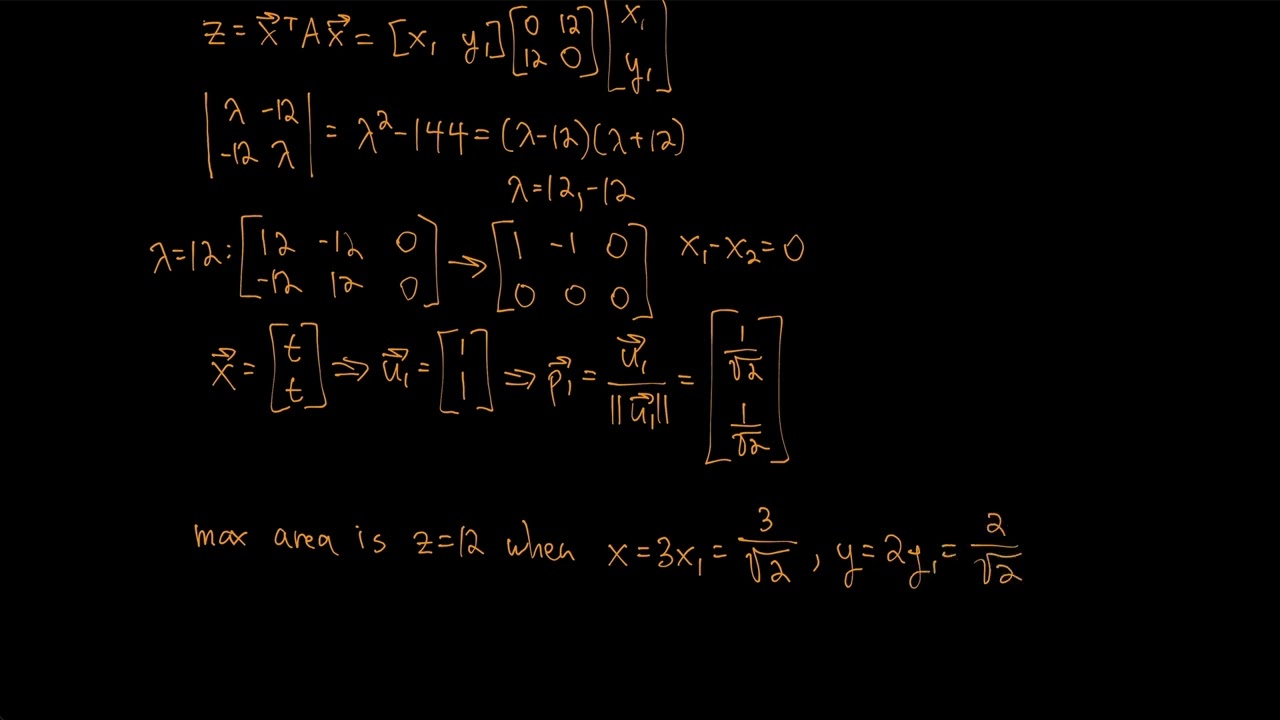 z = x⃗ᵀAx⃗ = [x₁ y₁] [0 12; 12 0] [x₁; y₁]
|λ -12; -12 λ| = λ² - 144 = (λ-12)(λ+12)
λ = 12, -12
λ = 12: [12 -12 0; -12 12 0] → [1 -1 0; 0 0 0] x₁ - x₂ = 0
x⃗ = [t; t] ⇒ u⃗₁ = [1; 1] ⇒ p⃗₁ = u⃗₁/||u⃗₁|| = [1/√2; 1/√2]
max area is z = 12 when x = 3x₁ = 3/√2, y = 2y₁ = 2/√2